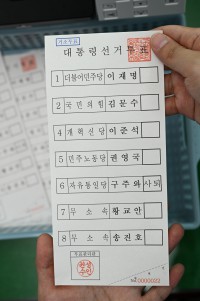 대통령선거투표
1 더불어민주당 이재명
2 국민의힘 김문수
4 개혁신당 이준석
5 민주노동당 권영국
6 자유통일당 구주와 사퇴
7 무소속 황교안
8 무소속 송진호